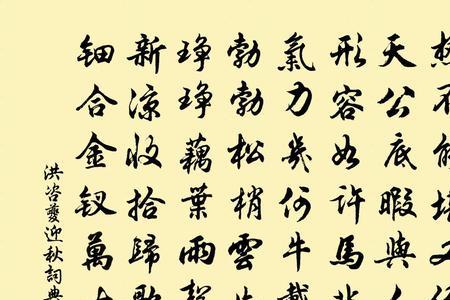 不能堪又
天公底暇與人
形容如許馬
氣力幾何牛載
勃勃松梢雲
琤琤藕葉雨聲
新涼收拾歸歌
鈿合金釵萬
洪咨夔迎秋詞典